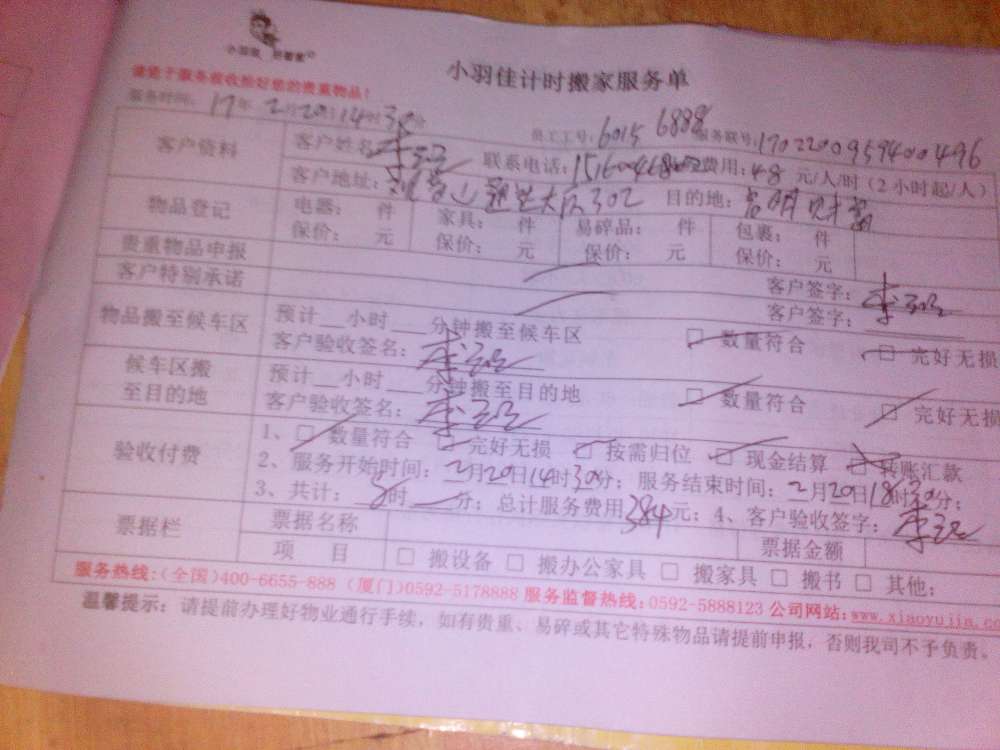 小羽佳计时搬家服务单
请您于服务前收拾好您的贵重物品!
服务时间: 17年2月20日14时30分 员工工号: 6015 6888 服务联号: 1702200959400496
客户资料 客户姓名: 李 联系电话: 费用: 48 元/人/时 (2小时起/人)
客户地址: 302 目的地:
物品登记 电器: 件 家具: 件 易碎品: 件 包裹: 件
保价: 元 保价: 元 保价: 元 保价: 元
贵重物品申报 客户签字: 李
客户特别承诺 客户签字:
物品搬至候车区 预计__小时__分钟搬至候车区 □ 数量符合 □ 完好无损
客户验收签名: 李
候车区搬至目的地 预计__小时__分钟搬至目的地 □ 数量符合 □ 完好无损
客户验收签名: 李
验收付费 1、□ 数量符合 □ 完好无损 □ 按需归位 □ 现金结算 □ 转账汇款
2、服务开始时间: 2月20日14时30分; 服务结束时间: 2月20日18时30分;
3、共计: 8时__分; 总计服务费用384元; 4、客户验收签字: 李
票据栏 票据名称 票据金额
项 目 □ 搬设备 □ 搬办公家具 □ 搬家具 □ 搬书 □ 其他:
服务热线:(全国)400-6655-888 (厦门)0592-5178888 服务监督热线:0592-5888123 公司网站:www.xiaoyujia.co
温馨提示: 请提前办理好物业通行手续, 如有贵重、易碎或其它特殊物品请提前申报, 否则我司不予负责。